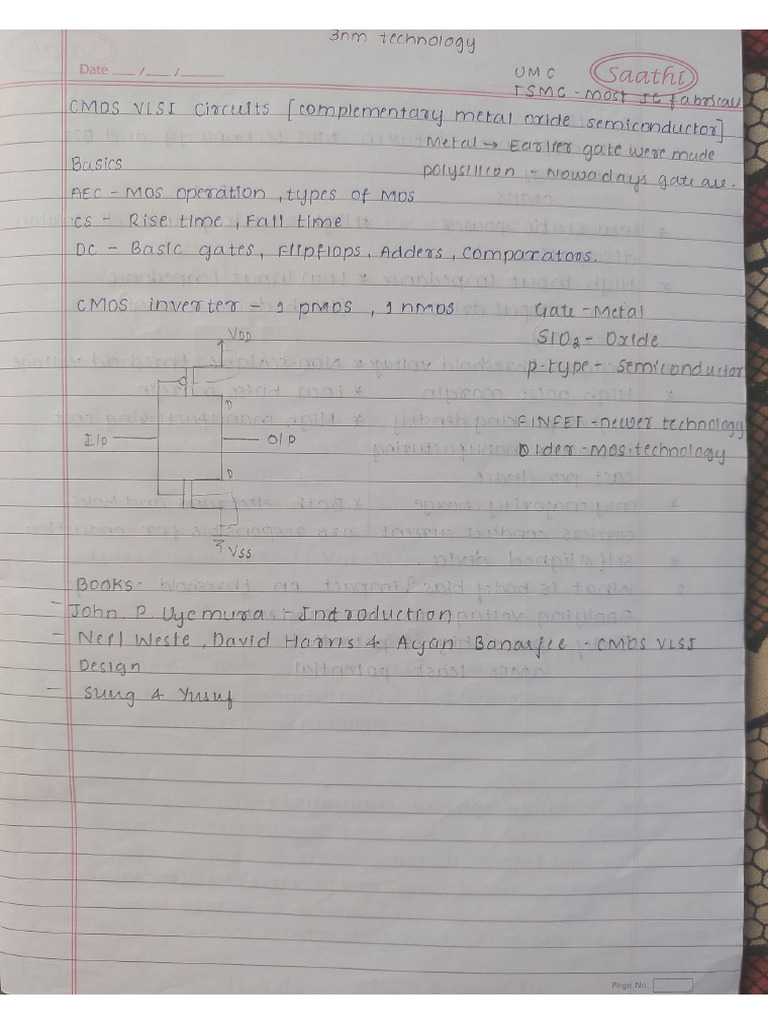 3nm technology
Date ___/___/____
UMC
Saathi
TSMC - most IC fabricau
CMOS VLSI circuits [complementary metal oxide semiconductor]
Metal → Earlier gate were made
Basics
polysilicon - Nowadays gate are.
AEC - MOS operation, types of MOS
CS - Rise time, Fall time
DC - Basic gates, Flipflops, Adders, comparators.
CMOS inverter - 1 pmos, 1 nmos
Gate - Metal
SiO2 - Oxide
p-type - semiconductor
VDD
D
FINFET - newer technology
I/P
O/P
Older - Mos technology
D
VSS
BOOKS
- John P Uyemura - Indroduction
- Neel Weste, David Harris & Ayan Banarjee - CMOS VLSI
Design
- Sung & Yusuf
Page No.